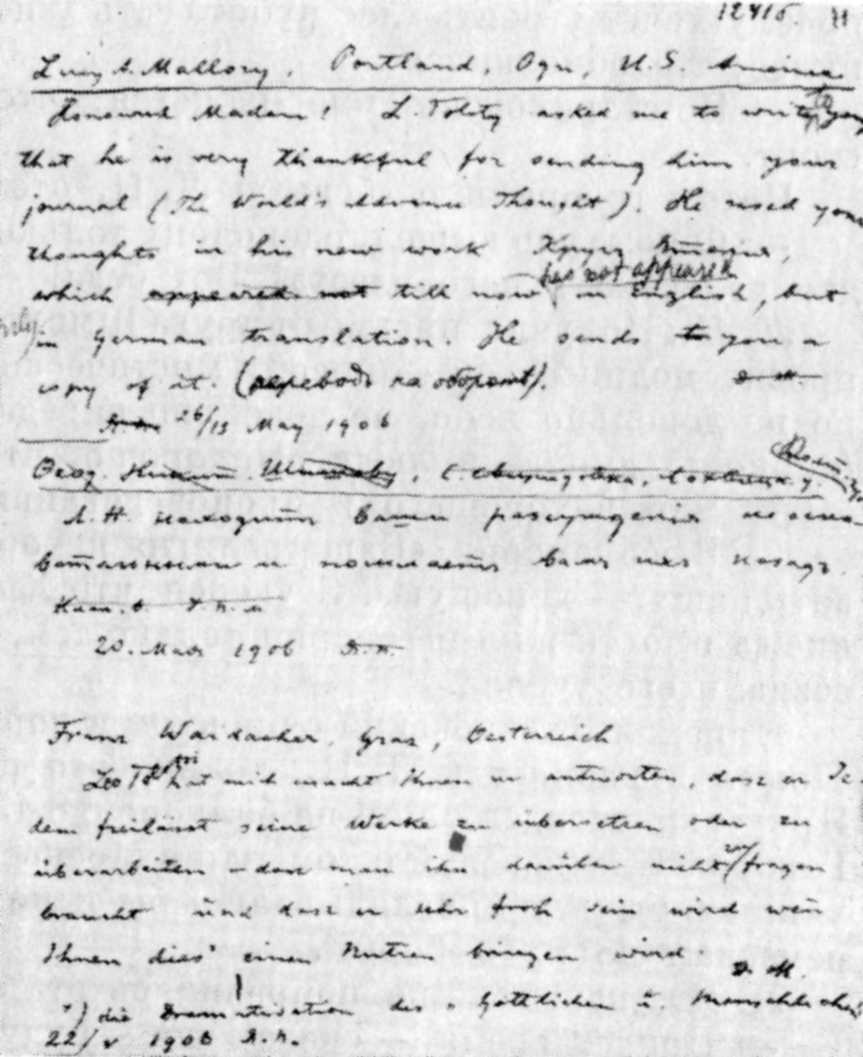 12416
Lucy A. Mallory. Portland, Ogn, U.S. America
Honoured Madam! L. Tolstoy asked me to write to you
that he is very thankful for sending him your
journal (The World's Advance Thought). He used your
thoughts in his new work Кругъ Чтенія,
has not appeared
which appeared not till now in English, but
only in german translation. He sends to you a
copy of it. (переводъ на оборотѣ).
26/13 May 1906
Л. Н. находитъ ваши разсужденія
и посылаетъ вамъ ихъ назадъ.
20. Мая 1906
Franz Waidacher, Graz, Oesterreich
Leo Tolstoi hat mich ersucht Ihnen zu antworten, dasz er Je-
dem freilässt seine Werke zu übersetzen oder zu
überarbeiten dasz man ihn darüber nicht zu fragen
braucht und dasz er sehr froh sein wird wen
Ihnen dies einen Nutzen bringen wird
Д. М.
*) die Dramatisation des "Göttlichen u. Menschlichen
22/V 1906